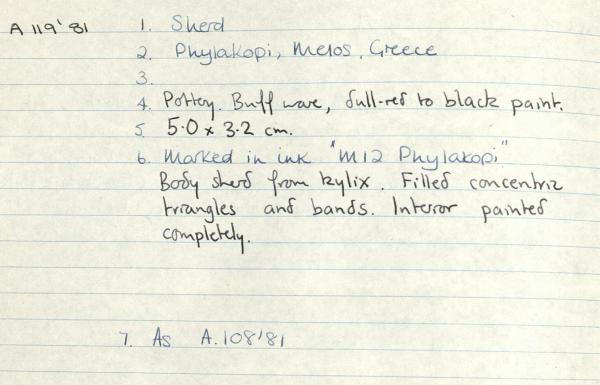 A 119'81
1. Sherd
2. Phylakopi, Melos, Greece
3.
4. Pottery. Buff ware, dull-red to black paint.
5. 5.0 x 3.2 cm.
6. Marked in ink "M12 Phylakopi"
Body sherd from kylix. Filled concentric
triangles and bands. Interior painted
completely.
7. As A.108'81